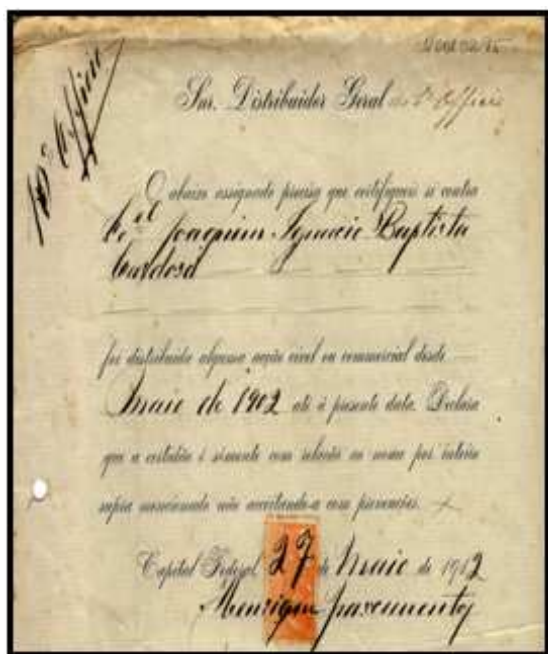 10º Officio
Snr. Distribuidor Geral do 6º Officio
O abaixo assignado precisa que certifiqueis si contra
Cel Joaquim Ignacio Baptista
Cardoso
foi distribuida alguma acção civel ou commercial desde
Maio de 1902 até á presente data. Declara
que a certidão é sómente com relação ao nome por inteiro
supra mencionado não acceitando-a com parecenças.
Capital Federal 27 de Maio de 1912
Henrique Nascimento